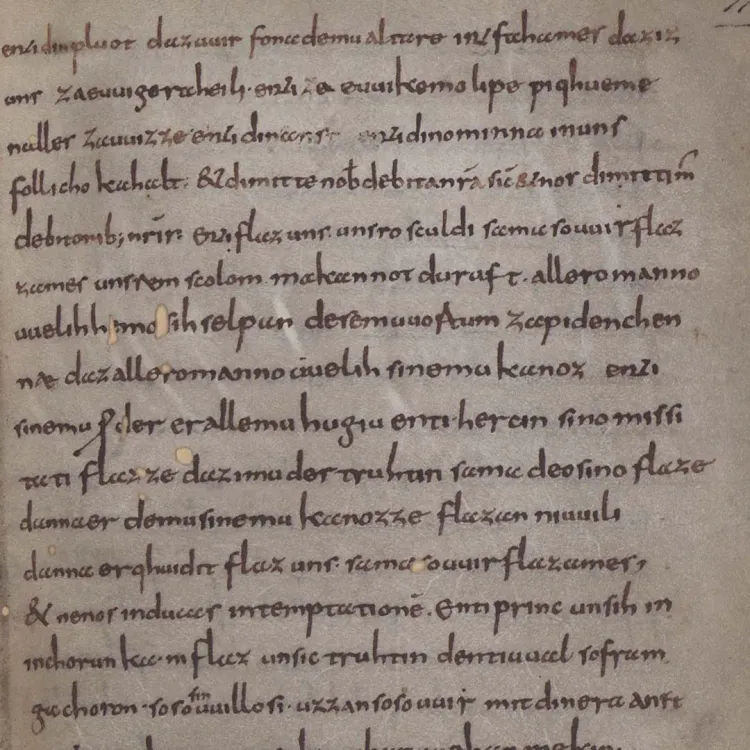 enti diu pluot daz uuir fona demu altare intfahames daz iz
uns za euuigera heili· enti za euuikemo lipe piqhueme
nalles za uuizze enti dina anst enti dino minna in uns
follicho kahalt· & dimitte nob debita nr̄a sic̄ & nos dimittim̄
debitorib; nr̄is· enti flaz uns· unsro sculdi sama so uuir flaz
zames unsrem scolom· makannot durft· allero manno
uuelihhemo sih selpan desem uuortum za pidenchen
næ daz allero manno uuelih sinemu kanoz enti
sinemu p̱der er allemu hugiu enti hercin sino missi
tati flazze daz imu der truhtin sama deo sino flaze
danna er demu sinemu kanozze flazan niuuili
danna er qhuidit flaz uns· sama so uuir flazames,
& nenos inducas in temptationē. Enti princ unsih in
in chorunka· ni flaz unsic truhtin den tiuual so fram
ga choron· soso sin uuillo si· uzzan soso uuir mit dinera anst